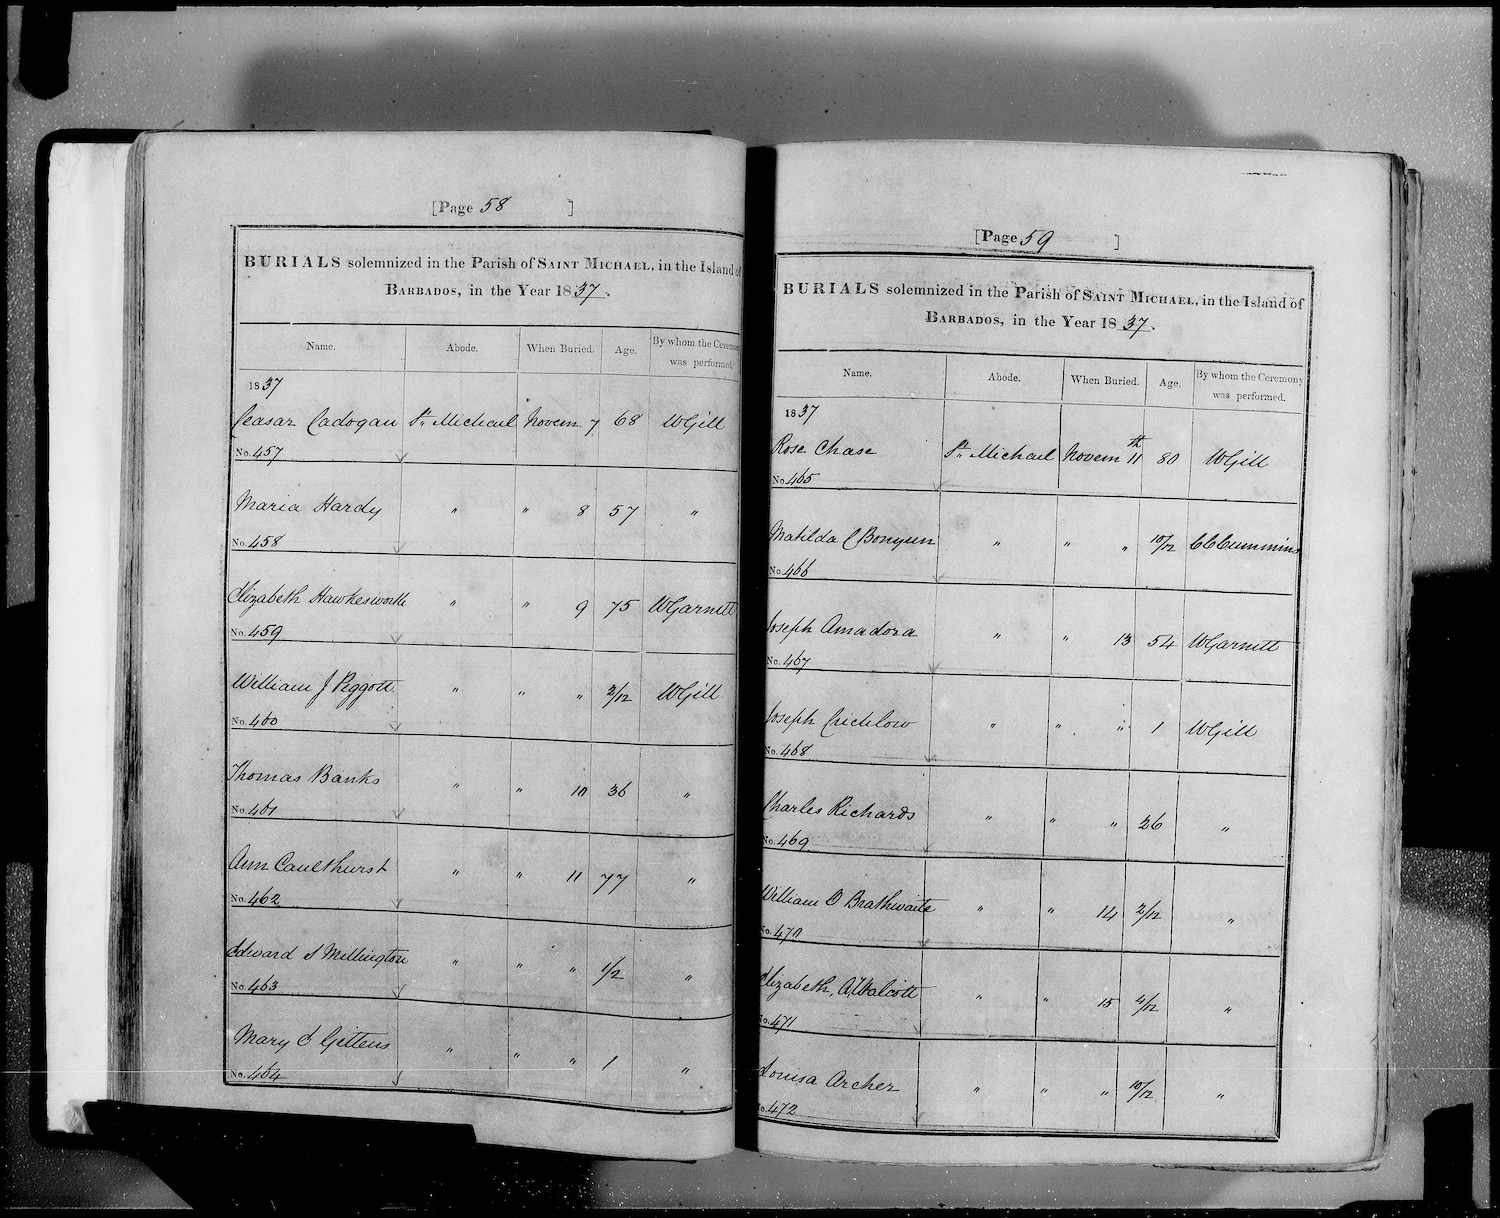 [Page 58 ]
BURIALS solemnized in the Parish of SAINT MICHAEL, in the Island of
BARBADOS, in the Year 1837.
Name. Abode. When Buried. Age. By whom the Ceremony
was performed.
1837
Ceasar Cadogan St. Michael Novem 7 68 WGill
No. 457
Maria Hardy " " 8 57 "
No. 458
Elizabeth Hawkesworth " " 9 75 WGarnett
No. 459
William J Piggott " " " 3/12 WGill
No. 460
Thomas Banks " " 10 36 "
No. 461
Ann Caulthurst " " 11 77 "
No. 462
Edward S Millington " " " 1/2 "
No. 463
Mary E Gittens " " " 1 "
No. 464
[Page 59 ]
BURIALS solemnized in the Parish of SAINT MICHAEL, in the Island of
BARBADOS, in the Year 1837.
Name. Abode. When Buried. Age. By whom the Ceremony
was performed.
1837
Rose Chase St. Michael Novem 11th 80 WGill
No. 465
Matilda C Bonyun " " " 10/12 CCCummins
No. 466
Joseph Amadora " " 13 54 WGarnett
No. 467
Joseph Crichlow " " " 1 WGill
No. 468
Charles Richards " " " 26 "
No. 469
William O Brathwaite " " 14 2/12 "
No. 470
Elizabeth A Walcott " " 15 4/12 "
No. 471
Louisa Archer " " " 10/12 "
No. 472